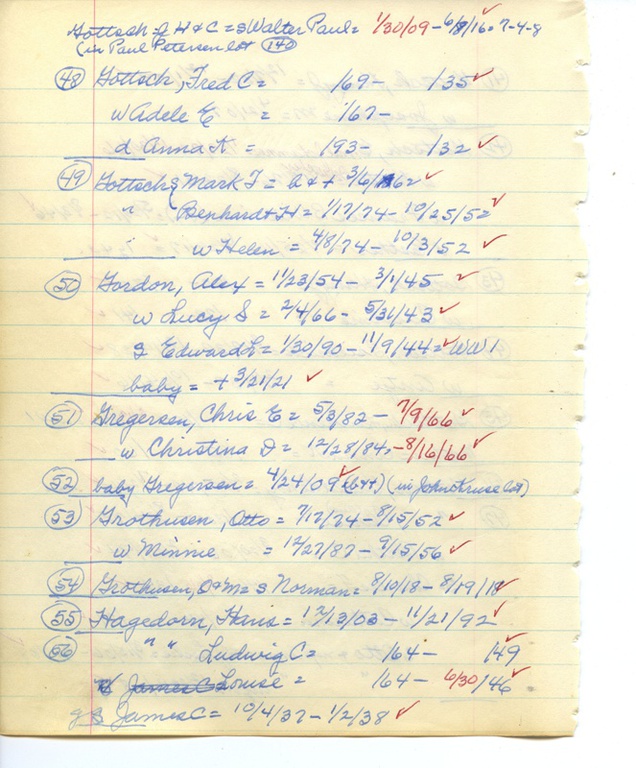 Gottsch of H & C = s Walter Paul = 1/30/09 - 6/8/16 = 7-4-8
(in Paul Petersen lot (140)
(48) Gottsch, Fred C = /69 - /35 ✓
w Adele E = /67 -
d Anna A = /93 - /32 ✓
(49) Gottsch, Mark F = b & + 3/6/62 ✓
" Bernhardt H = 1/17/74 - 10/25/52 ✓
w Helen = 4/8/74 - 10/3/52 ✓
(50) Gordon, Alex = 11/23/54 - 3/1/45 ✓
w Lucy S = 2/4/66 - 5/31/43 ✓
s Edward L = 1/30/90 - 11/9/44 = ✓ WW1
baby = + 3/21/21 ✓
(51) Gregersen, Chris E = 5/3/82 - 7/9/66 ✓
w Christina D = 12/28/84 - 8/16/66 ✓
(52) baby Gregersen = 4/24/09 ✓ (b&+) (in John Kruse lot)
(53) Grothusen, Otto = 7/17/74 - 8/15/52 ✓
w Minnie = 12/27/87 - 9/15/56 ✓
(54) Grothusen, O & M = s Norman = 8/10/18 - 8/19/18 ✓
(55) Hagedorn, Hans = 12/13/03 - 11/21/92 ✓
(56) " " Ludwig C = /64 - /49 ✓
w James C Louise = /64 - 6/30/46 ✓
gs James C = 10/4/37 - 1/2/38 ✓